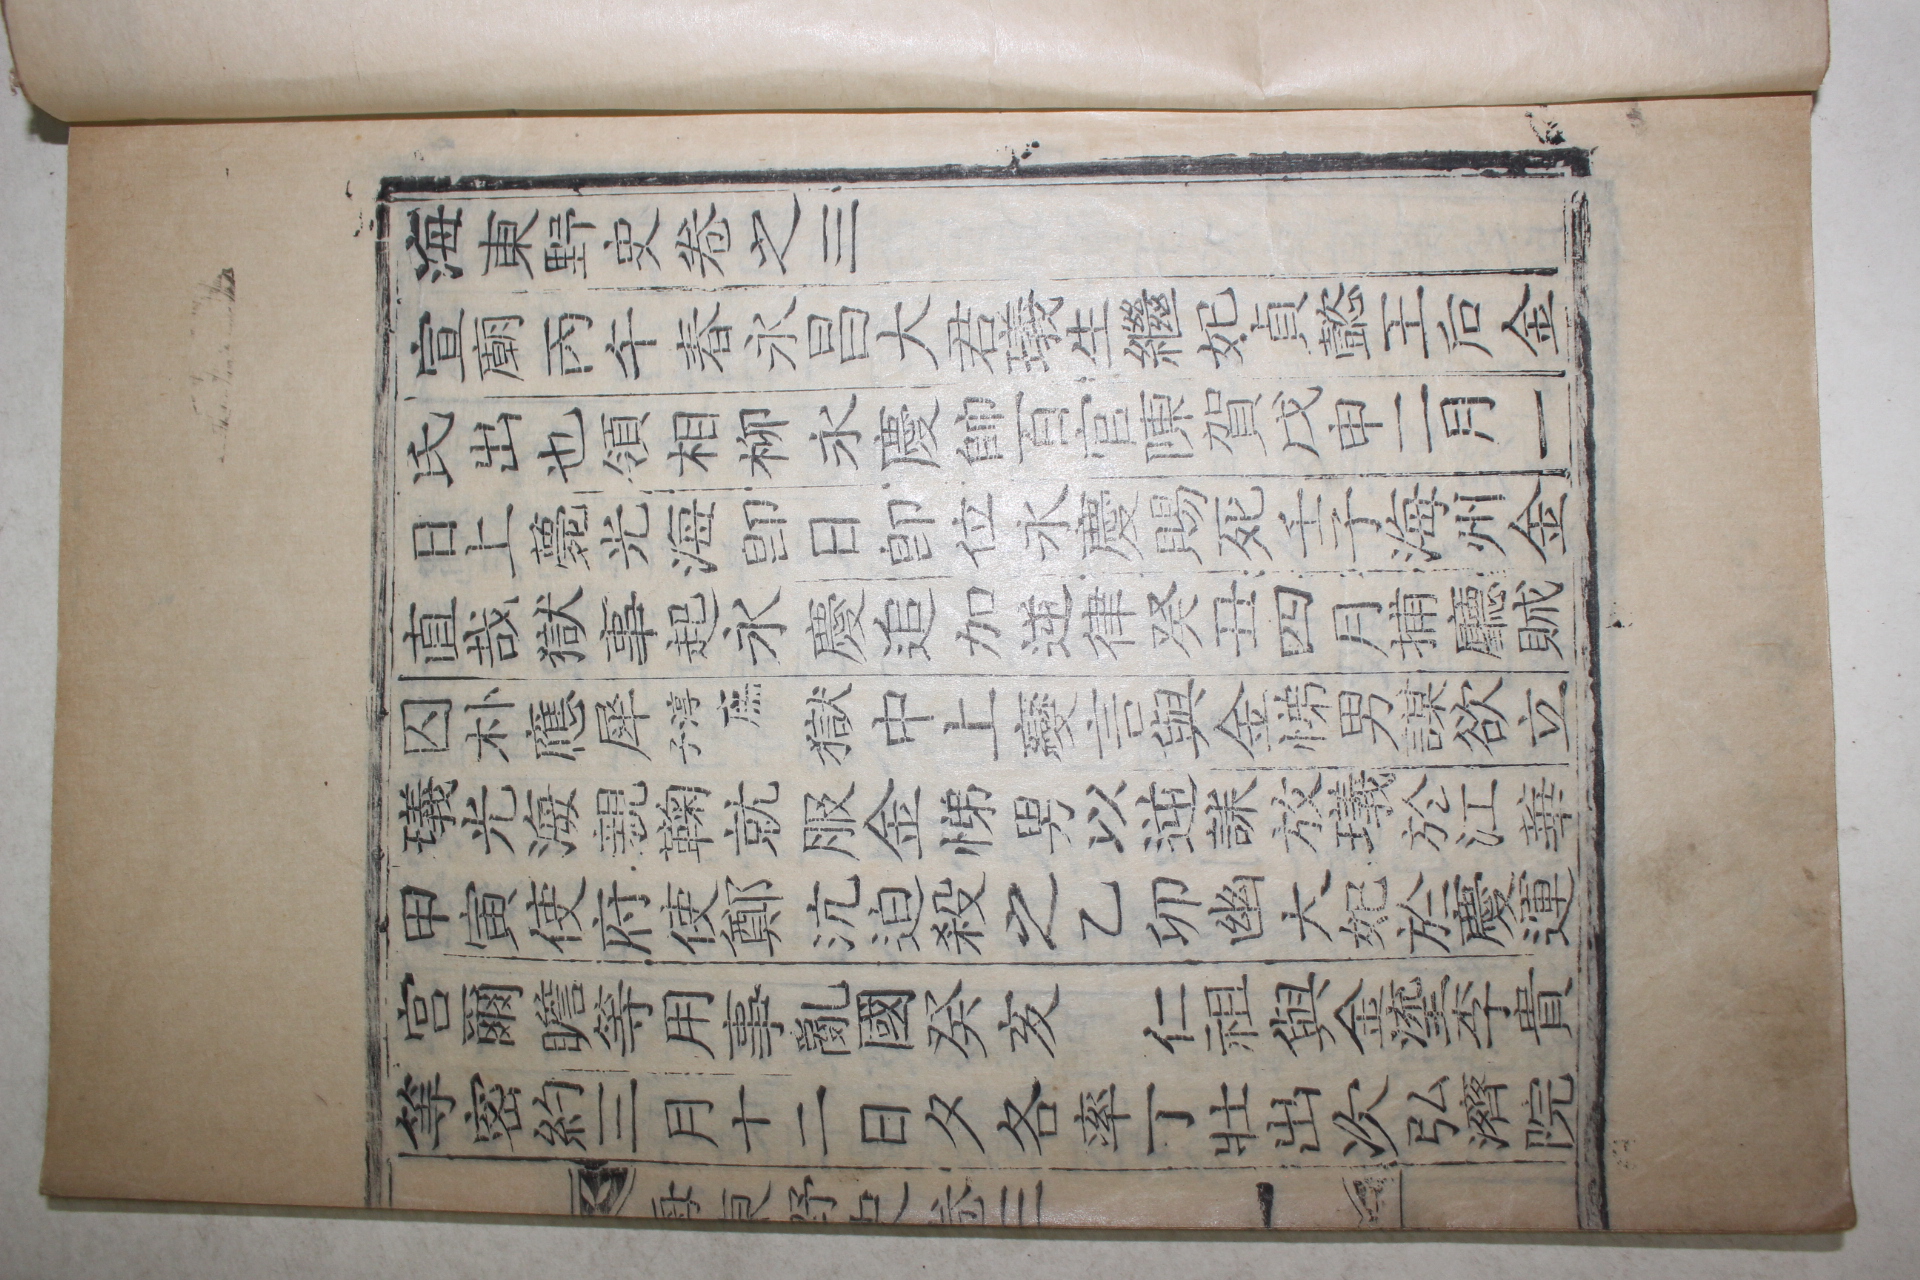 海東野史卷之三
宣廟丙午春永昌大君㼁生繼妃貞懿王后金
氏出也領相柳永慶帥百官陳賀戊申二月一
日上薨光海卽日卽位永慶賜死壬子海州金
直哉獄事起永慶追加逆律癸丑四月捕廳賊
囚朴應犀淳庶子獄中上變言與金悌男謀欲立
㼁光海親鞫就服金悌男以逆誅放㼁於江華
甲寅使府使鄭沆迫殺之乙卯幽大妃於慶運
宮爾瞻等用事亂國癸亥 仁祖與金瑬李貴
等密約三月十二日夕各率丁壯出次弘濟院
海東野史卷三 一